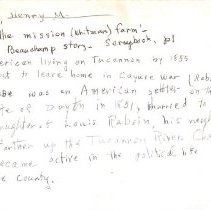 , Henry M.
the mission (Whitman) farm -
Beauchamp story - Scrapbook, p1
American living on Tucannon by 1855
to leave home in Cayuse War
was an American settler on the
of in 1851, married to
daughter of Louis Raboin, his
farther up the Tucannon River.
became active in the political life
County.